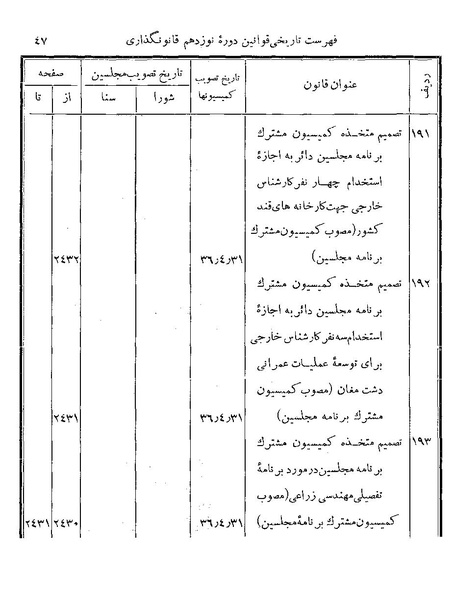 فهرست تاریخی قوانین دورهٔ نوزدهم قانونگذاری ۴۷
ردیف عنوان قانون تاریخ تصویب کمیسیونها تاریخ تصویب مجلسین صفحه
شورا سنا از تا
۱۹۱ تصمیم متخذه کمیسیون مشترك
برنامه مجلسین دائر به اجازهٔ
استخدام چهار نفر کارشناس
خارجی جهت کارخانه های قند
کشور (مصوب کمیسیون مشترك
برنامه مجلسین) ۳۶٫۴٫۳۱ ۲۴۳۲
۱۹۲ تصمیم متخذه کمیسیون مشترك
برنامه مجلسین دائر به اجازهٔ
استخدام سه نفر کارشناس خارجی
برای توسعهٔ عملیات عمرانی
دشت مغان (مصوب کمیسیون
مشترك برنامه مجلسین) ۳۶٫۴٫۳۱ ۲۴۳۱
۱۹۳ تصمیم متخذه کمیسیون مشترك
برنامه مجلسین در مورد برنامهٔ
تفصیلی مهندسی زراعی (مصوب
کمیسیون مشترك برنامهٔ مجلسین) ۳۶٫۴٫۳۱ ۲۴۳۰ ۲۴۳۱